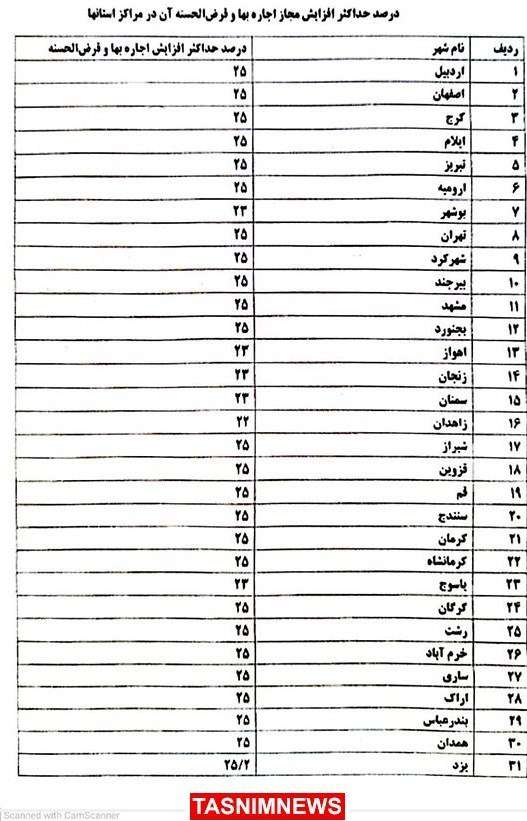 درصد حداکثر افزایش مجاز اجاره بها و قرض‌الحسنه آن در مراکز استانها
ردیف نام شهر درصد حداکثر افزایش اجاره بها و قرض‌الحسنه
۱ اردبیل ۲۵
۲ اصفهان ۲۵
۳ کرج ۲۵
۴ ایلام ۲۵
۵ تبریز ۲۵
۶ ارومیه ۲۵
۷ بوشهر ۲۳
۸ تهران ۲۵
۹ شهرکرد ۲۵
۱۰ بیرجند ۲۵
۱۱ مشهد ۲۵
۱۲ بجنورد ۲۵
۱۳ اهواز ۲۳
۱۴ زنجان ۲۳
۱۵ سمنان ۲۳
۱۶ زاهدان ۲۲
۱۷ شیراز ۲۵
۱۸ قزوین ۲۵
۱۹ قم ۲۵
۲۰ سنندج ۲۵
۲۱ کرمان ۲۵
۲۲ کرمانشاه ۲۵
۲۳ یاسوج ۲۳
۲۴ گرگان ۲۵
۲۵ رشت ۲۵
۲۶ خرم آباد ۲۵
۲۷ ساری ۲۵
۲۸ اراک ۲۵
۲۹ بندرعباس ۲۵
۳۰ همدان ۲۵
۳۱ یزد ۲۵/۲
TASNIMNEWS
Scanned with CamScanner